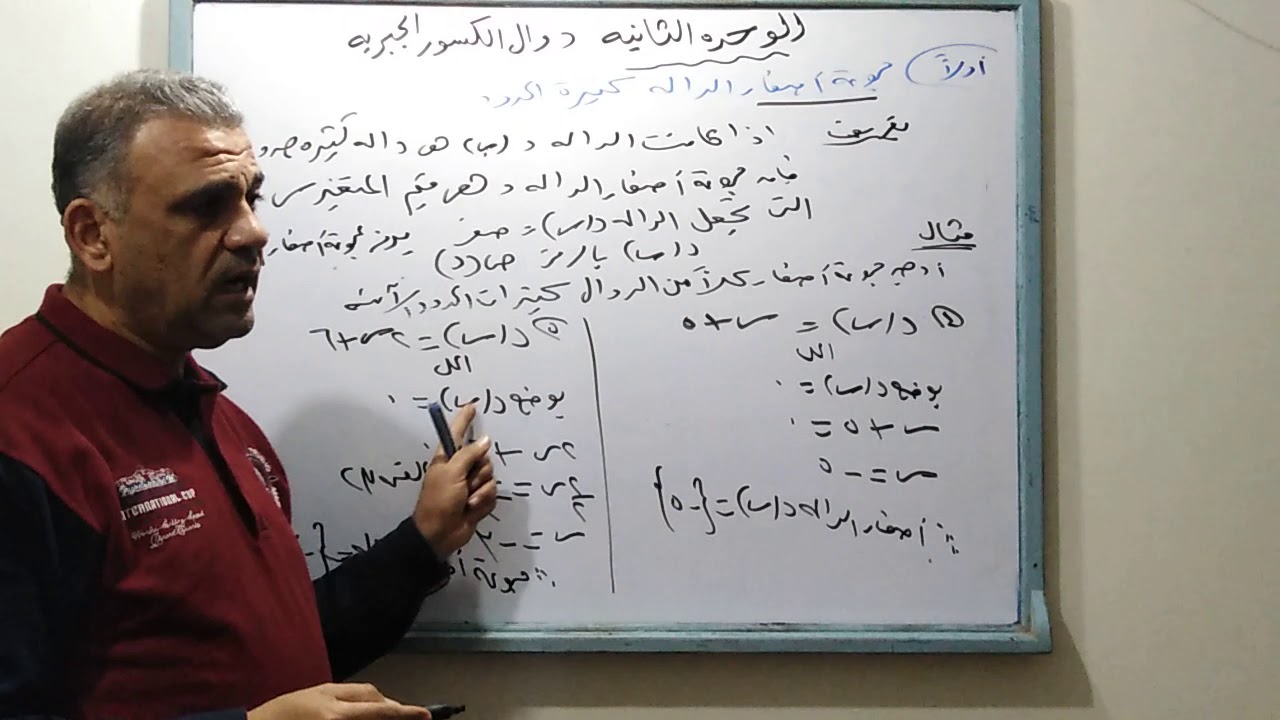 الوحده الثانيه دوال الكسور الجبريه
أولاً مجموعة أصفار الداله كثيرة الحدود
تعريف اذا كانت الداله د(س) هى داله كثيره حدود
فإن مجموعة أصفار الداله د هى قيم المتغير س
التى تجعل الداله د(س) = صفر يرمز لمجموعة أصفار
د(س) بالرمز ص(د)
مثال
أوجد مجموعة أصفار كلاً من الدوال كثيرات الحدود الآتيه
د(س) = س + ٥
الحل
بوضع د(س) = ٠
س + ٥ = ٠
س = - ٥
∴ أصفار الداله د(س) = {- ٥}
د(س) = ٢س + ٦
الحل
بوضع د(س) = ٠
٢س +
٢س = -
س = -
∴ مجموعة
INTERNATIONAL CUP